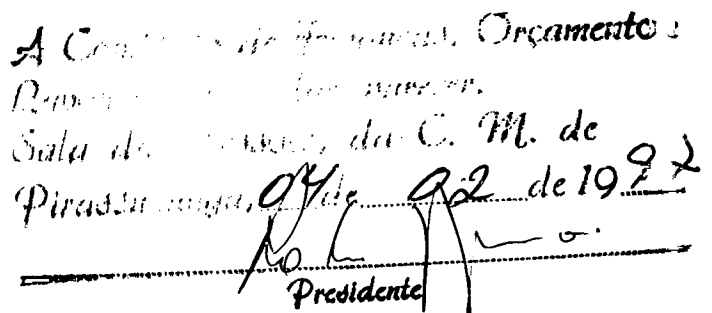 A Comissão de Finanças, Orçamento e
para dar parecer.
Sala das Sessões, da C. M. de
Pirassununga, 04 de 02 de 1992
Presidente